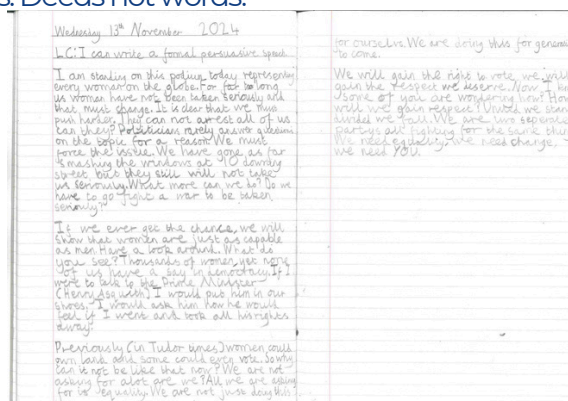 s. Deeds not words.
Wednesday 13th November 2024
LC: I can write a formal persuasive speech
I am standing on this podium today representing
every woman on the globe. For far too long
us women have not been taken seriously and
that must change. It is clear that we must
push harder. They can not arrest all of us
can they? Politicians rarely answer questions
on the topic for a reason. We must
force the issue. We have gone as far
smashing the windows at 10 downing
street but they still will not take
us seriously. What more can we do? Do we
have to go fight a war to be taken
seriously?
If we ever get the chance, we will
show that women are just as capable
as men. Have a look around. What do
you see? Thousands of women yet none
of us have a say in democracy. If I
were to talk to the Prime Minister
(Henry Asquith) I would put him in our
shoes. I would ask him how he would
feel if I went and took all his rights
away.
Previously (in Tudor times) women could
own land and some could even vote. So why
can is not be like that now? We are not
asking for alot are we? All we are asking
for is equality. We are not just doing this
for ourselves. We are doing this for generati
to come.
We will gain the right to vote, we will
gain the respect we deserve. Now I kn
some of you are wondering how? How
will we gain respect? United we stan
divided we fall. We are two seperate
partys all fighting for the same thin
We need equality, we need change,
we need YOU.